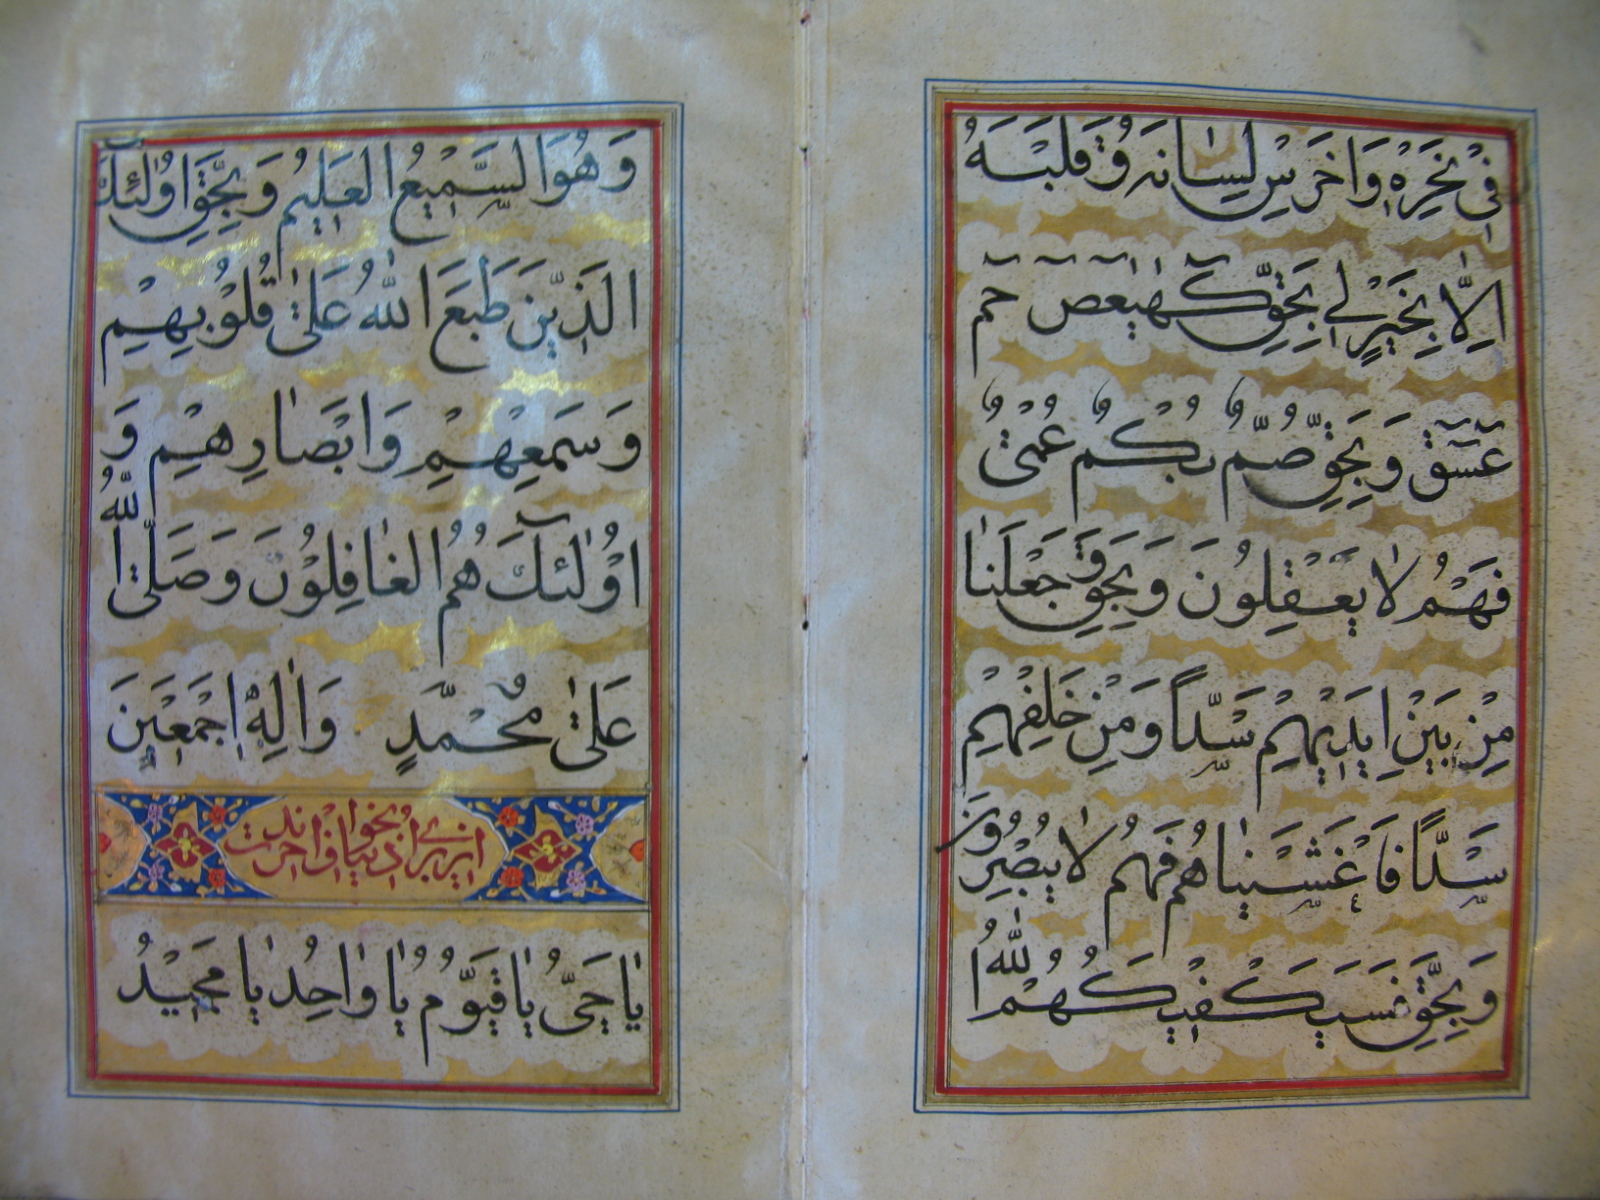 فِی نَحْرِهْ وَاَخْرَسْ لِسٰانَهُ وَ قَلْبَهُ
اِلّٰا بِخَیْرٍ لٖی بِحَقِّ كٓهٰیٰعٓصٓ حٰمٓ
عٓسٓقٓ وَ بِحَقِّ صُمٌّ بُكْمٌ عُمْیٌ
فَهُمْ لٰا یَعْقِلُونَ وَ بِحَقِّ وَ جَعَلْنٰا
مِنْ بَیْنِ اَیْدٖیهِمْ سَدّاً وَ مِنْ خَلْفِهِمْ
سَدّاً فَاَغْشَیْنٰاهُمْ فَهُمْ لٰا یُبْصِرُونَ
وَ بِحَقِّ فَسَیَكْفٖیكَهُمُ اللّٰهُ
وَ هُوَ السَّمٖیعُ الْعَلٖیمُ وَ بِحَقِّ اُولٰئِكَ
الَّذٖینَ طَبَعَ اللّٰهُ عَلیٰ قُلُوبِهِمْ
وَ سَمْعِهِمْ وَ اَبْصٰارِهِمْ وَ
اُولٰئِكَ هُمُ الْغٰافِلُونَ وَ صَلَّی اللّٰهُ
عَلیٰ مُحَمَّدٍ وَ اٰلِهٖ اَجْمَعٖینَ
از برای دنیا و آخرت بخواند
یٰا حَیُّ یٰا قَیُّومُ یٰا وٰاحِدُ یٰا مَجٖیدُ